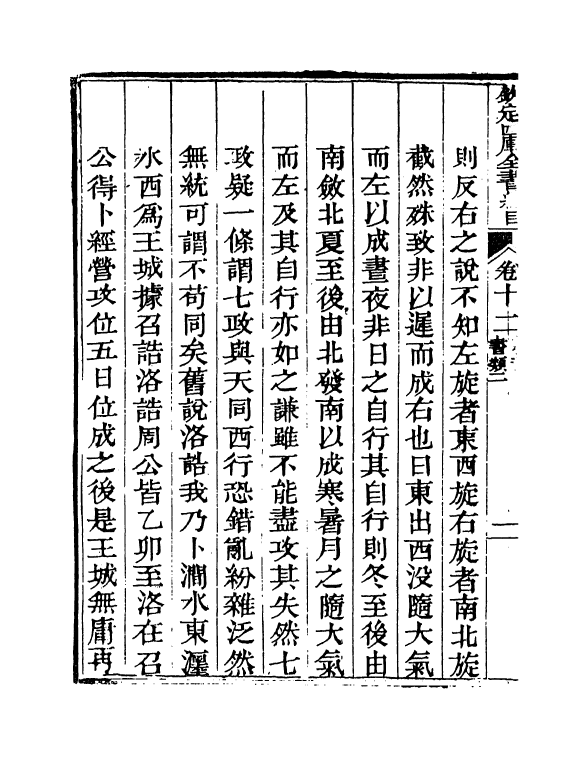 欽定四庫全書總目 卷十二 書類二
則反右之說不知左旋者東西旋右旋者南北旋
截然殊致非以遲而成右也日東出西没隨大氣
而左以成晝夜非日之自行其自行則冬至後由
南斂北夏至後由北發南以成寒暑月之隨大氣
而左及其自行亦如之謙雖不能盡攻其失然七
政疑一條謂七政與天同西行恐錯亂紛雜泛然
無統可謂不苟同矣舊說洛誥我乃卜澗水東瀍
水西為王城據召誥洛誥周公皆乙卯至洛在召
公得卜經營攻位五日位成之後是王城無庸再